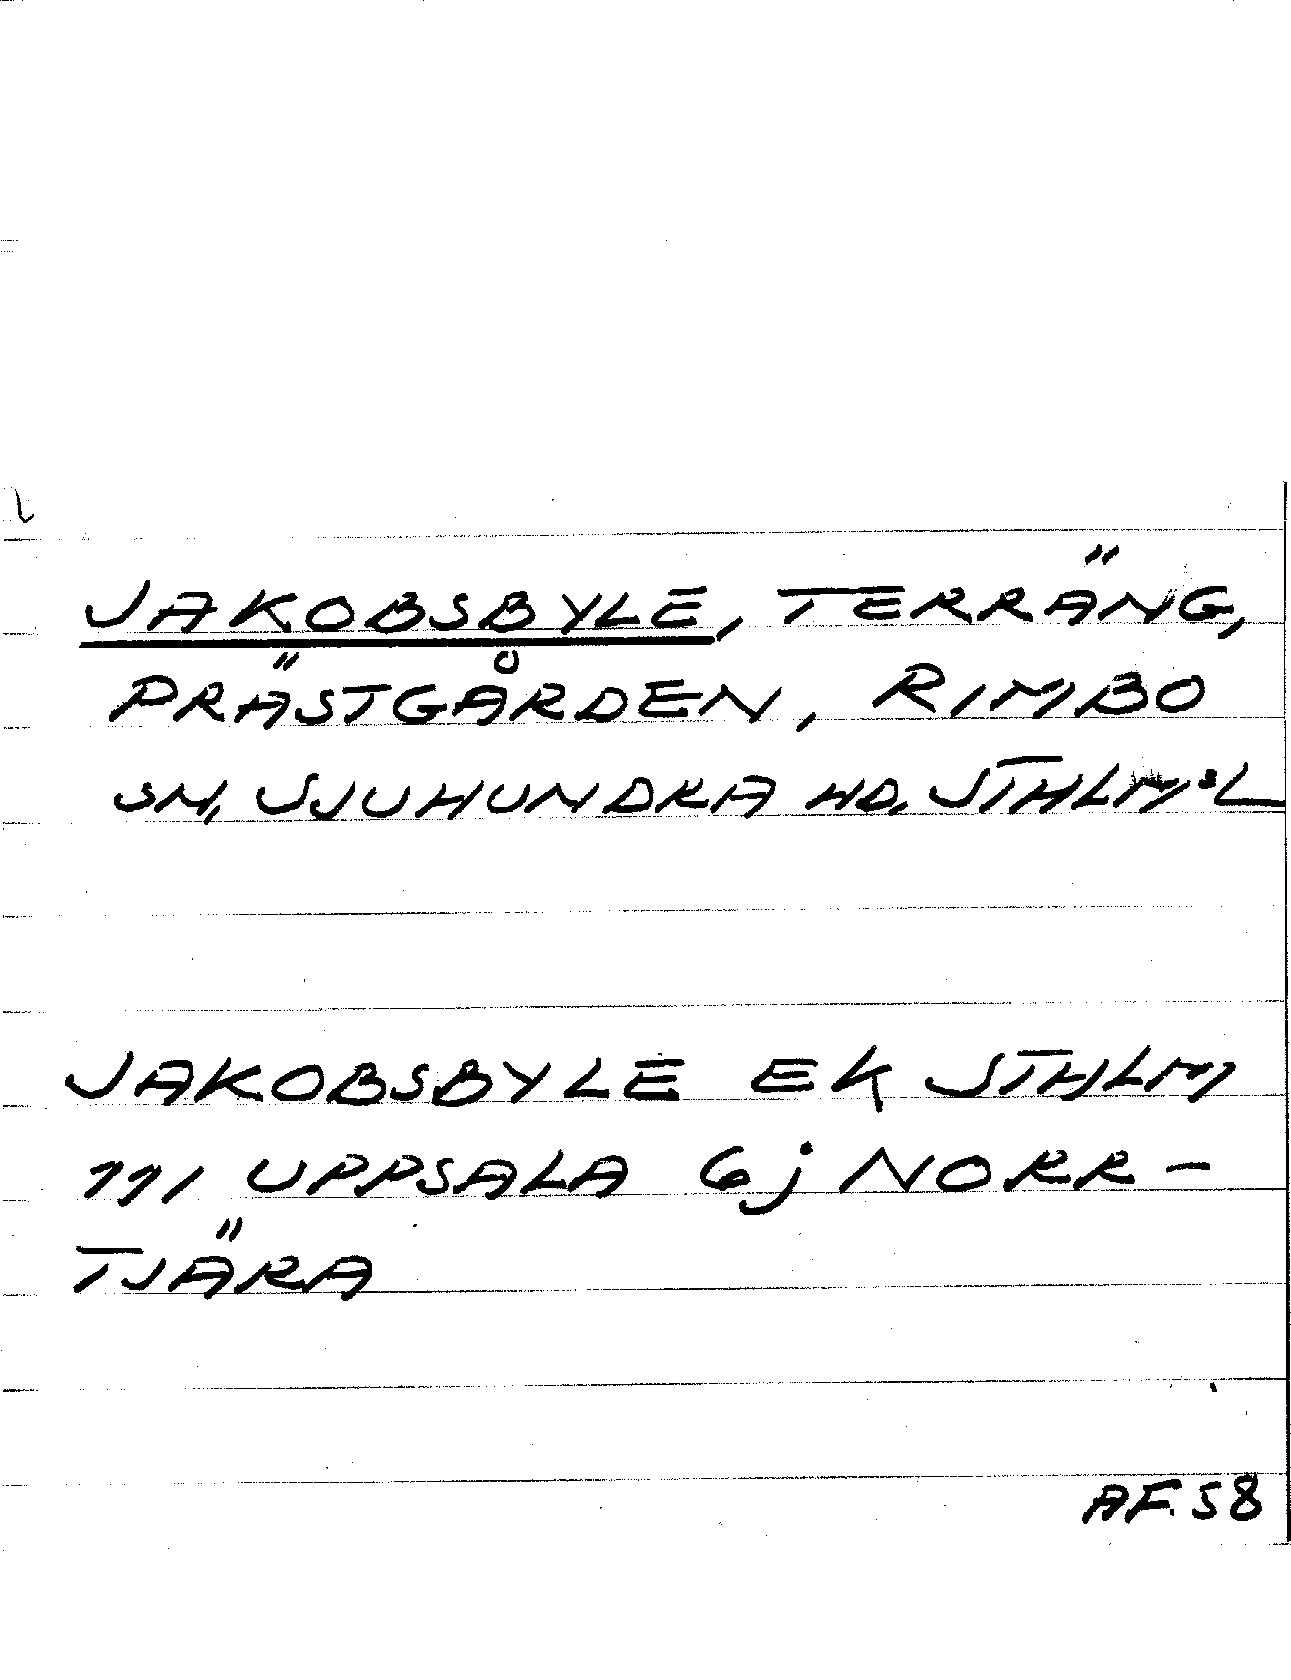 JAKOBSBYLE, TERRÄNG,
PRÄSTGÅRDEN, RIMBO
SN, SJUHUNDRA HD, STHLM:SL
JAKOBSBYLE EK STHLM
111 UPPSALA 6j NORR-
TJÄRA
AF. 58